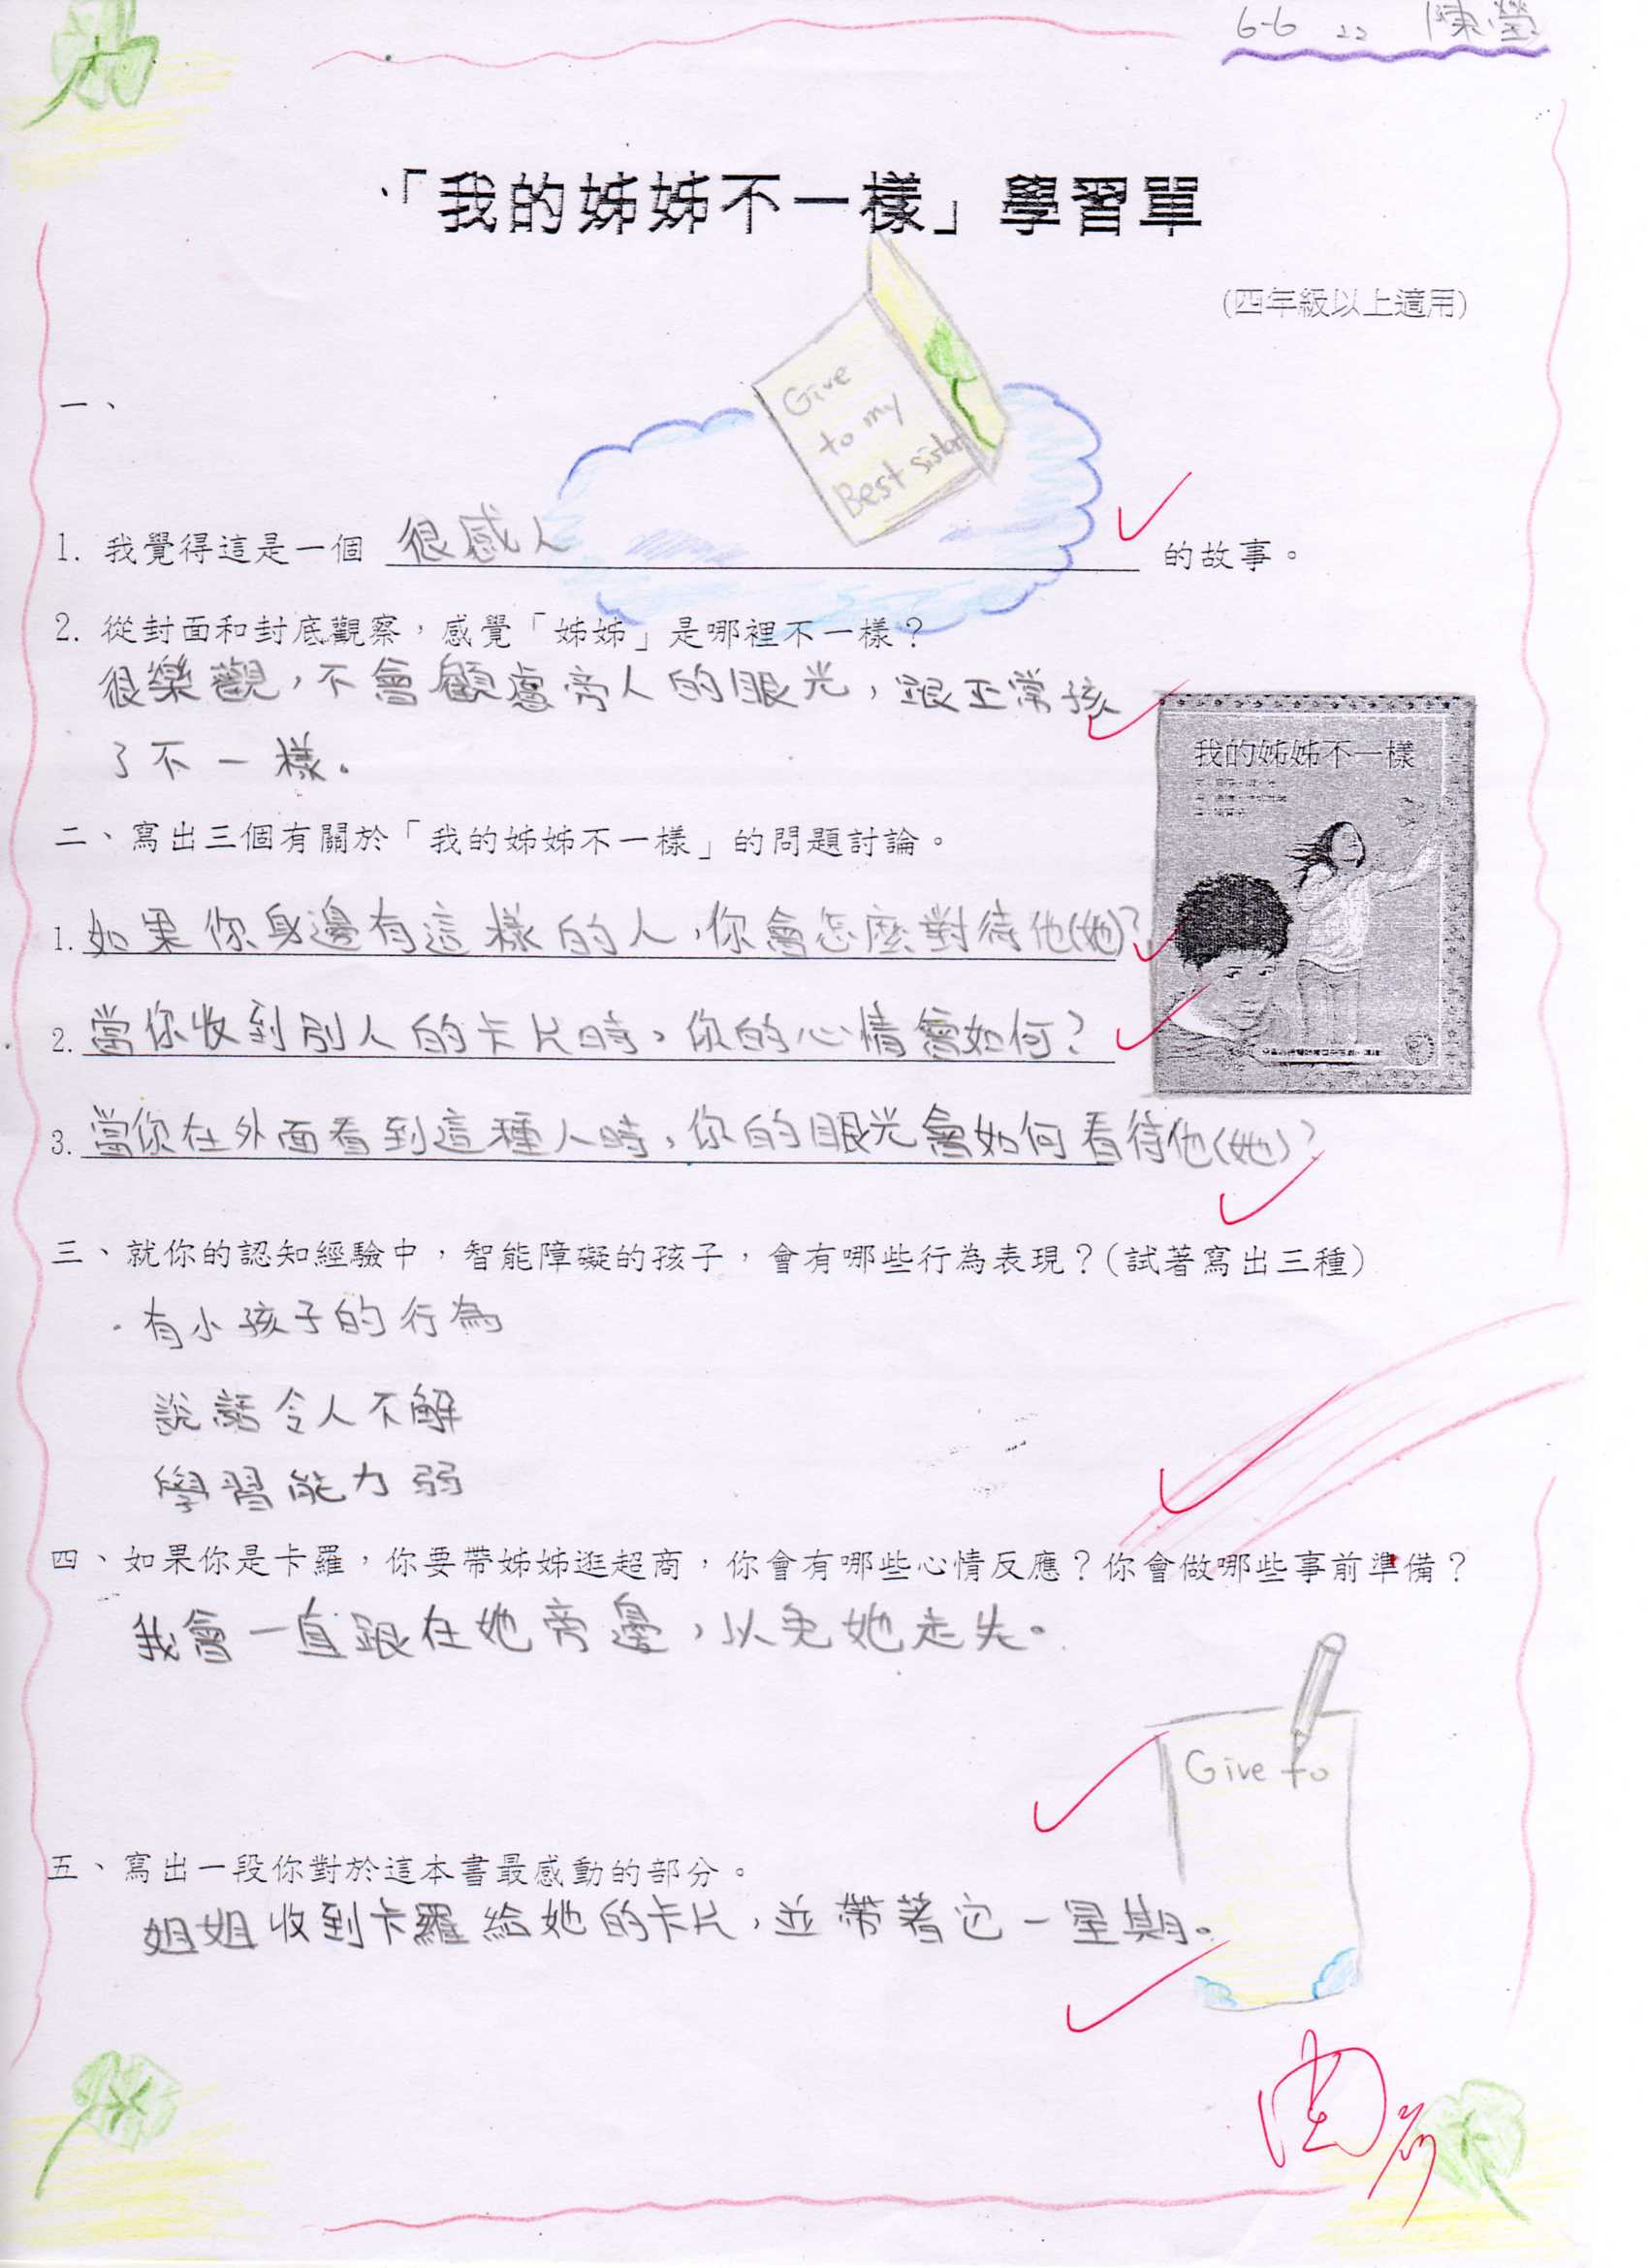 6-6 22 陳瑩
「我的姊姊不一樣」學習單
(四年級以上適用)
一、
Give
to my
Best sister
1. 我覺得這是一個 很感人 的故事。
2. 從封面和封底觀察，感覺「姊姊」是哪裡不一樣？
很樂觀，不會顧慮旁人的眼光，跟正常孩
子不一樣。
我的姊姊不一樣
二、寫出三個有關於「我的姊姊不一樣」的問題討論。
1. 如果你身邊有這樣的人，你會怎麼對待他(她)?
2. 當你收到別人的卡片時，你的心情會如何?
3. 當你在外面看到這種人時，你的眼光會如何看待他(她)?
三、就你的認知經驗中，智能障礙的孩子，會有哪些行為表現？(試著寫出三種)
有小孩子的行為
說話令人不解
學習能力弱
四、如果你是卡羅，你要帶姊姊逛超商，你會有哪些心情反應？你會做哪些事前準備？
我會一直跟在她旁邊，以免她走失。
Give to
五、寫出一段你對於這本書最感動的部分。
姐姐收到卡羅給她的卡片，並帶著它一星期。